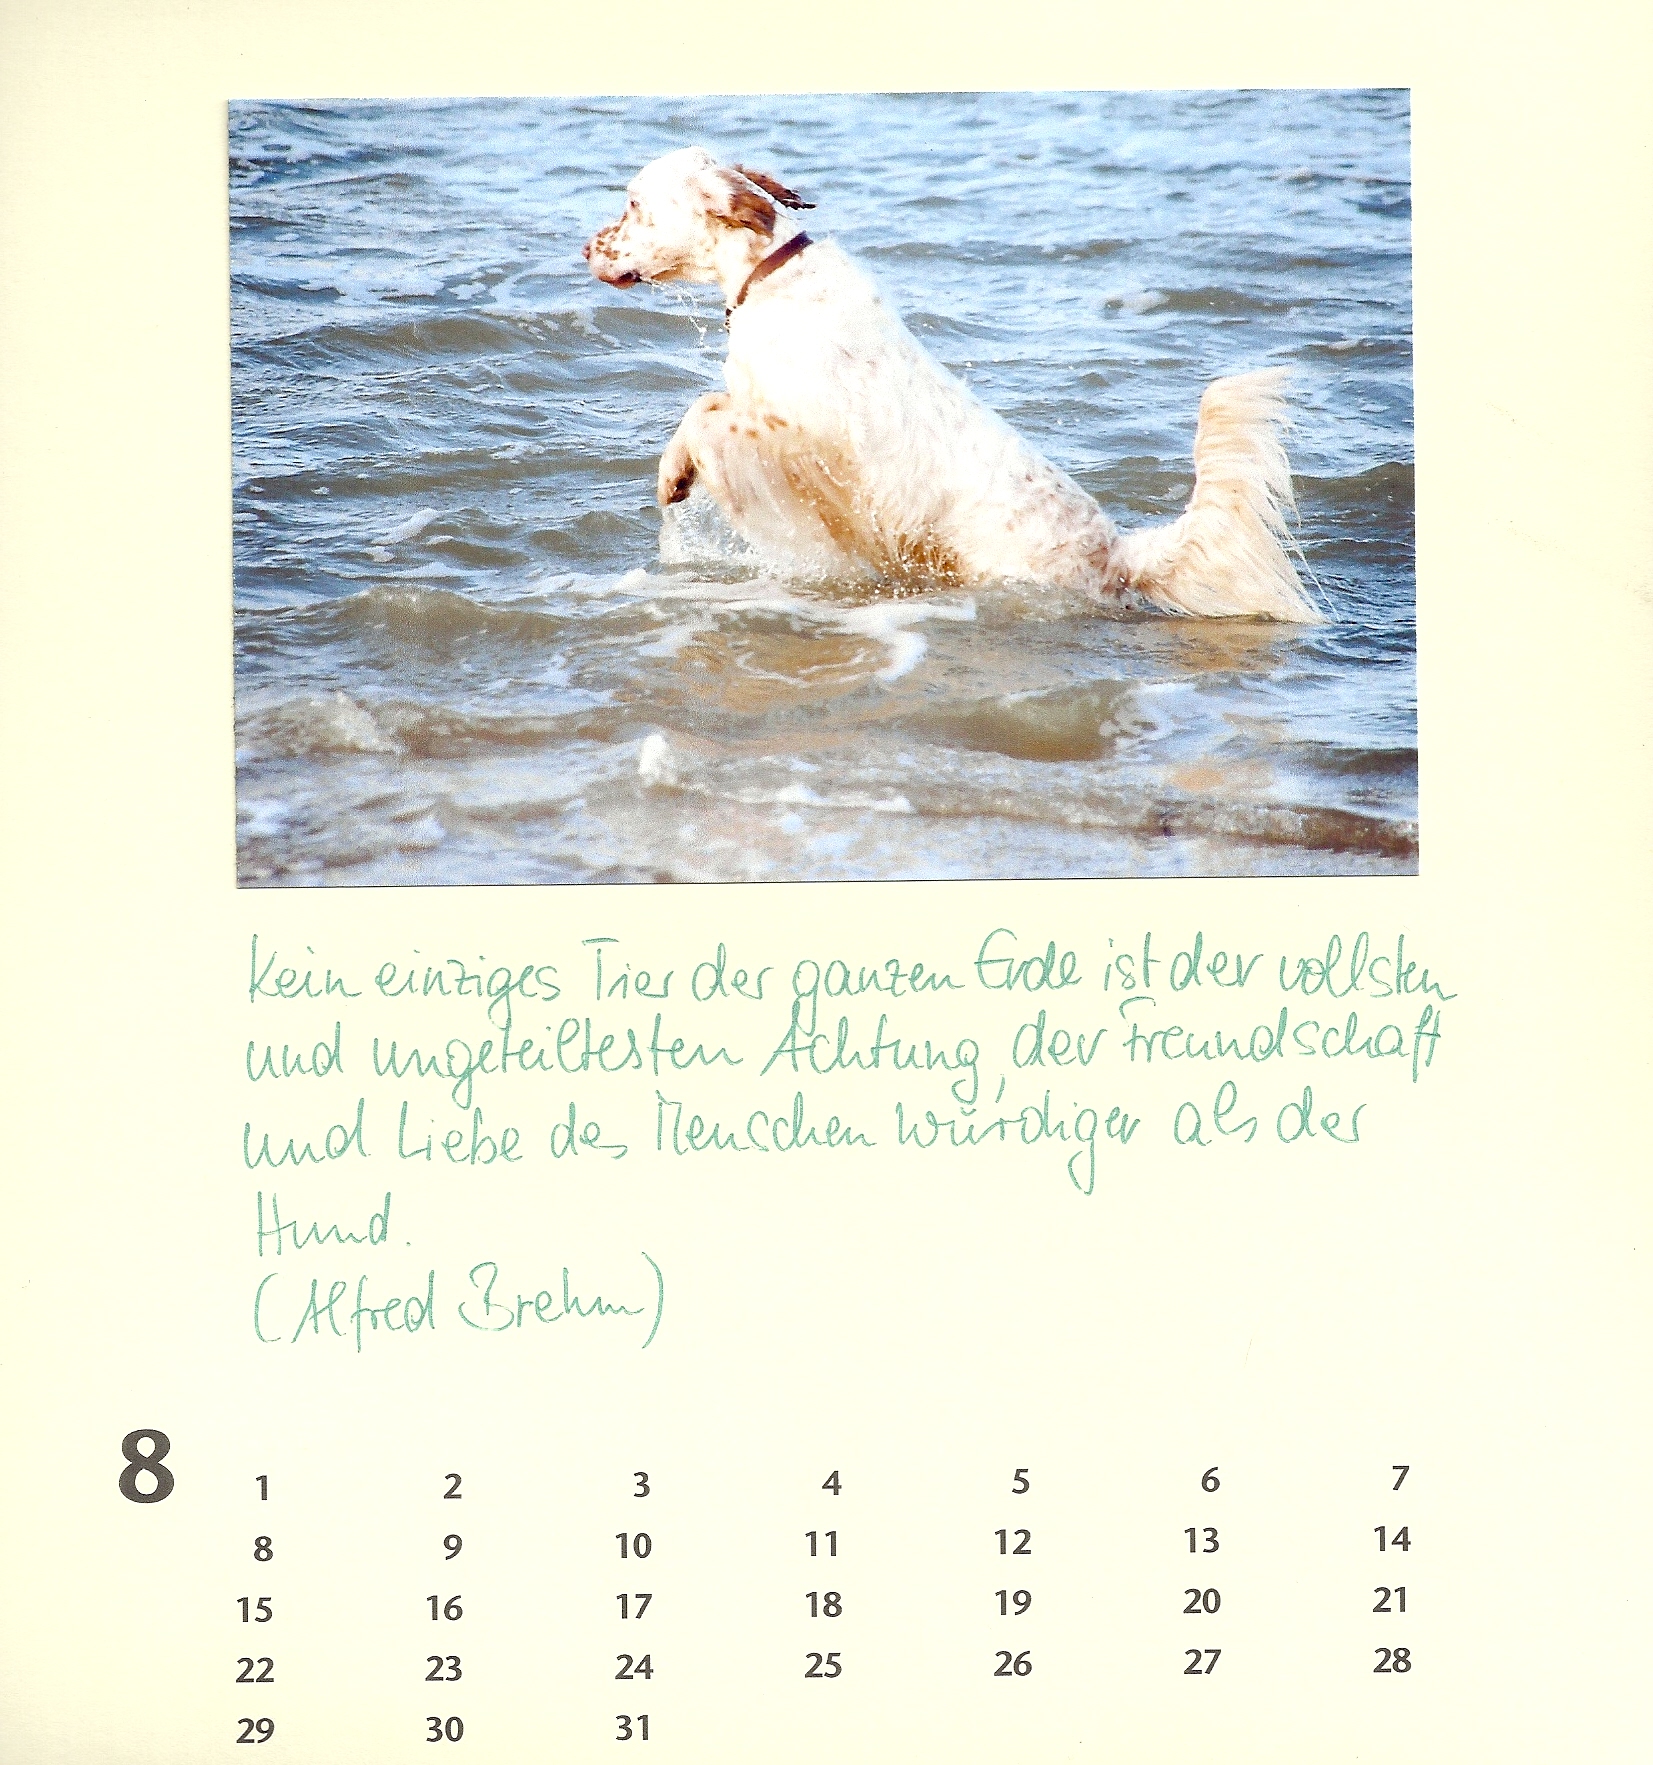 Kein einziges Tier der ganzen Erde ist der vollsten
und ungeteiltesten Achtung, der Freundschaft
und Liebe des Menschen würdiger als der
Hund.
(Alfred Brehm)
8
1 2 3 4 5 6 7
8 9 10 11 12 13 14
15 16 17 18 19 20 21
22 23 24 25 26 27 28
29 30 31